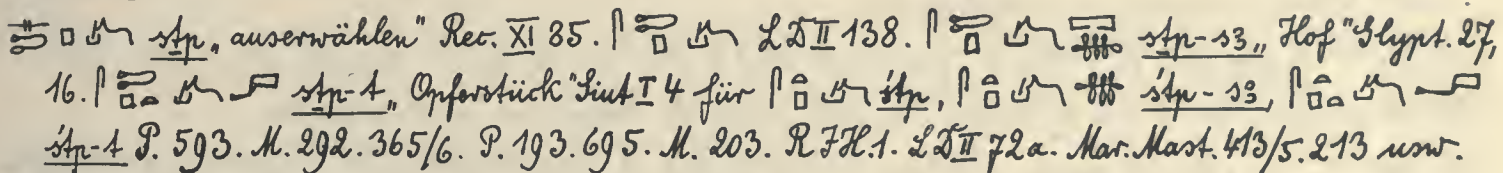 stp „auserwählen“ Rec. XI 85. LD II 138. stp-s3 „Hof“ Glypt. 27,
16. stp-t „Opferstück“ Siut I 4 für śtp, śtp-s3,
śtp-t P. 593. M. 292. 365/6. P. 193. 695. M. 203. RJH. 1. LD II 72a. Mar. Mast. 413/5. 213 usw.